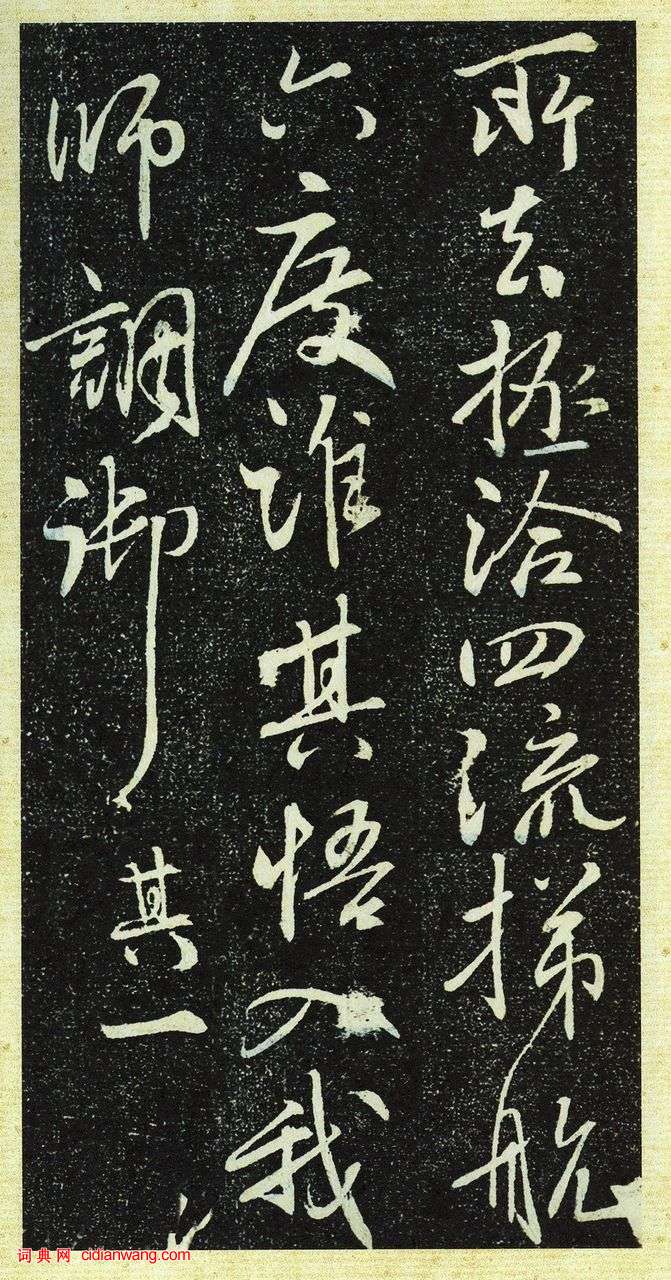 所去拯洽四流梯航
六度谁其悟入我
师调御其一
词典网 cidianwang.com